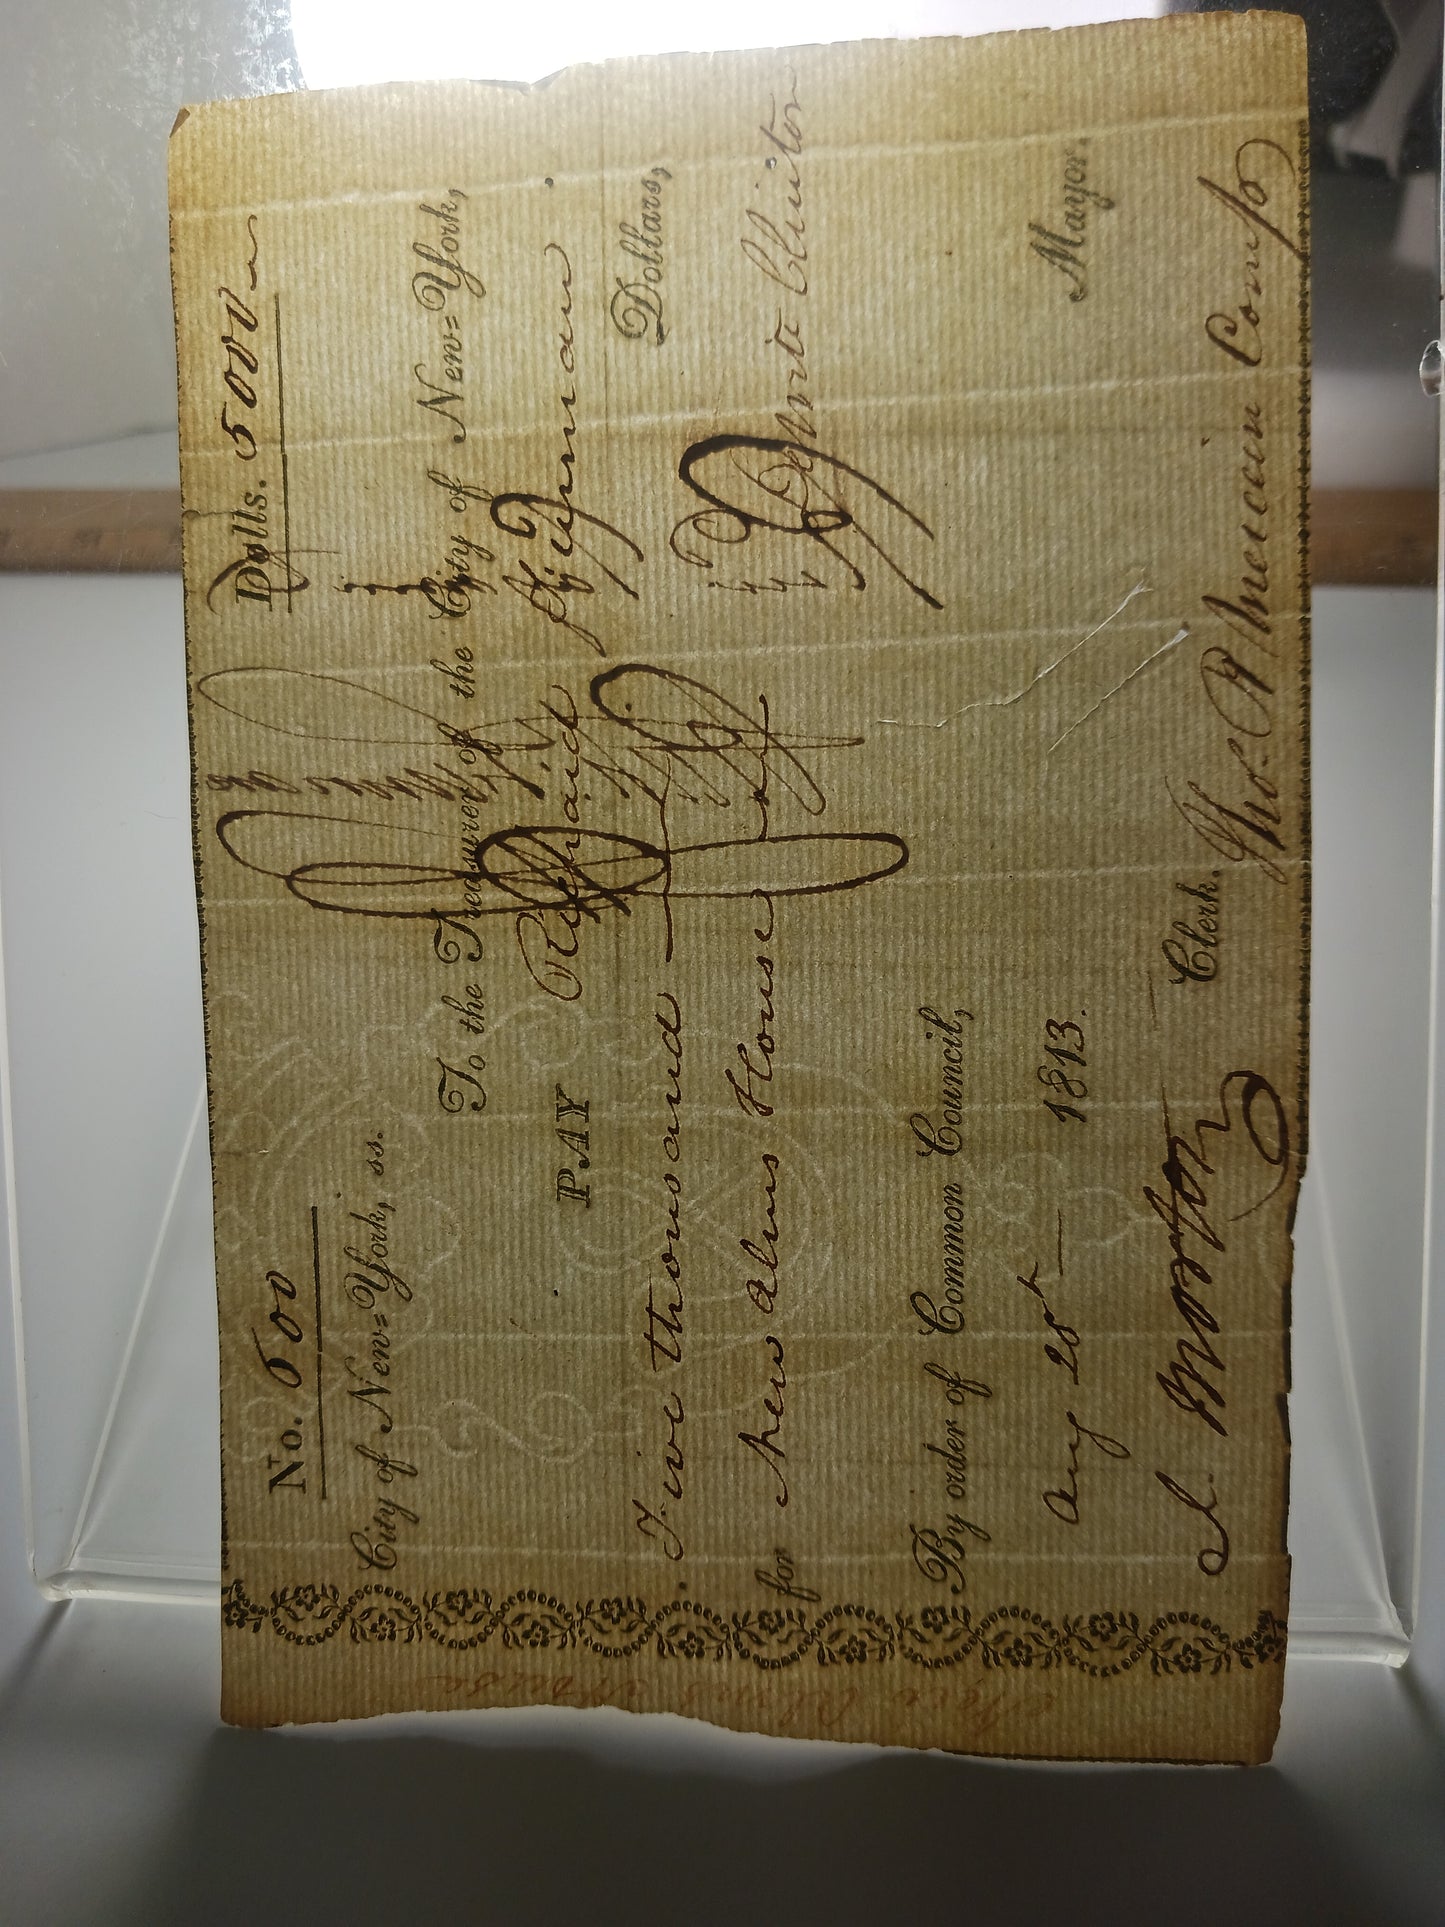 No. 500 Dolls. 5000
City of New=York, ss.
To the Treasurer of the City of New=York,
PAY Richard Furman
Five thousand Dollars,
for New Alms House
DeWitt Clinton
By order of Common Council,
Aug 28th 1813. Mayor.
J. Morton Clerk. Thos. R Mercein Comp
New Alms House